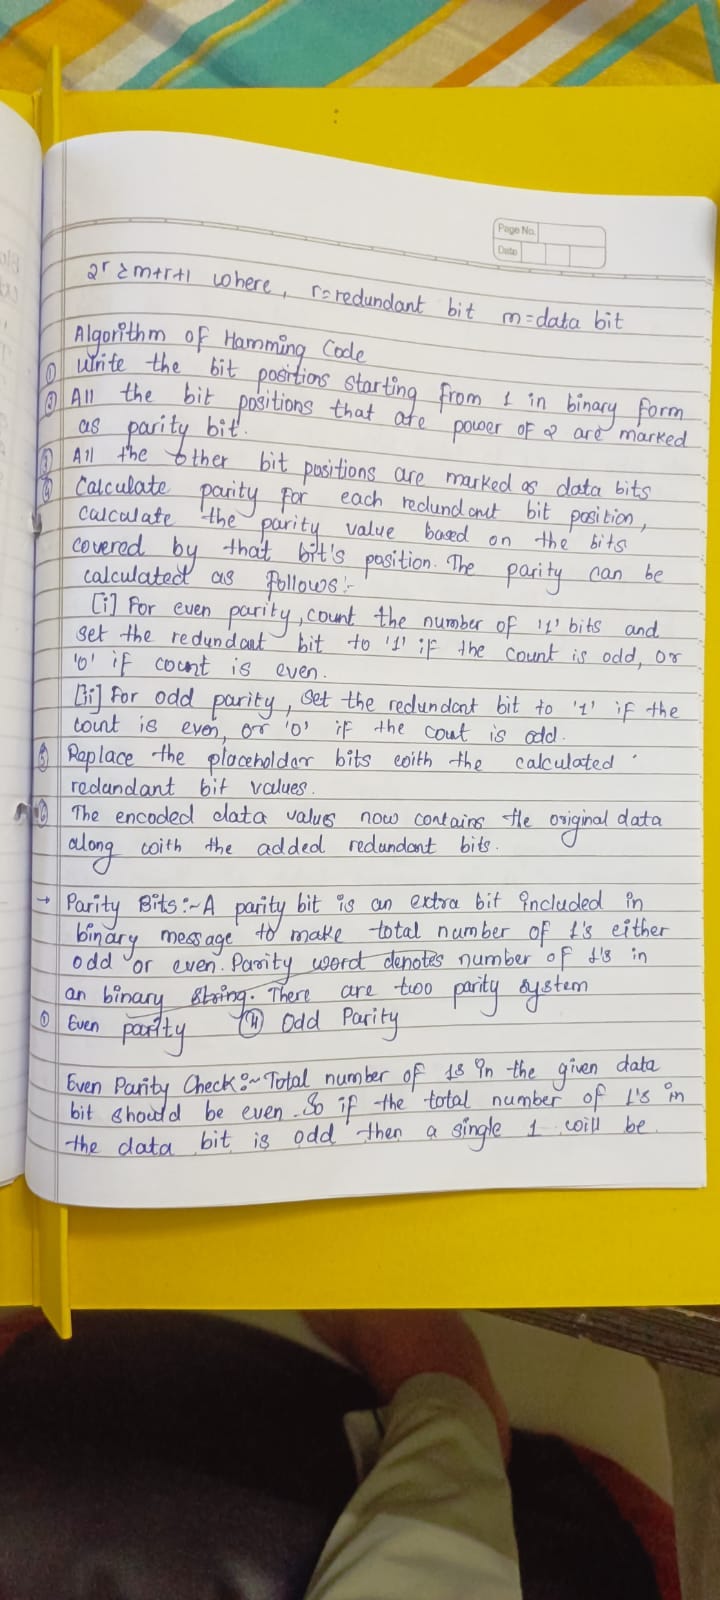 Page No.
Date
2^r ≥ m+r+1 where, r=redundant bit m=data bit
Algorithm of Hamming Code
① Write the bit positions starting from 1 in binary form
② All the bit positions that are power of 2 are marked
as parity bit.
③ All the other bit positions are marked as data bits
④ Calculate parity for each redundant bit position,
calculate the parity value based on the bits
covered by that bit's position. The parity can be
calculated as follows:-
[i] For even parity, count the number of '1' bits and
set the redundant bit to '1' if the count is odd, or
'0' if count is even.
[ii] For odd parity, set the redundant bit to '1' if the
count is even, or '0' if the cout is odd.
⑤ Replace the placeholder bits with the calculated
redundant bit values.
⑥ The encoded data values now contains the original data
along with the added redundant bits.
→ Parity Bits:~ A parity bit is an extra bit included in
binary message to make total number of 1's either
odd or even. Parity word denotes number of 1's in
an binary string. There are two parity system
① Even parity ⑪ Odd Parity
Even Parity Check:~ Total number of 1s in the given data
bit should be even. So if the total number of 1's in
the data bit is odd then a single 1 will be